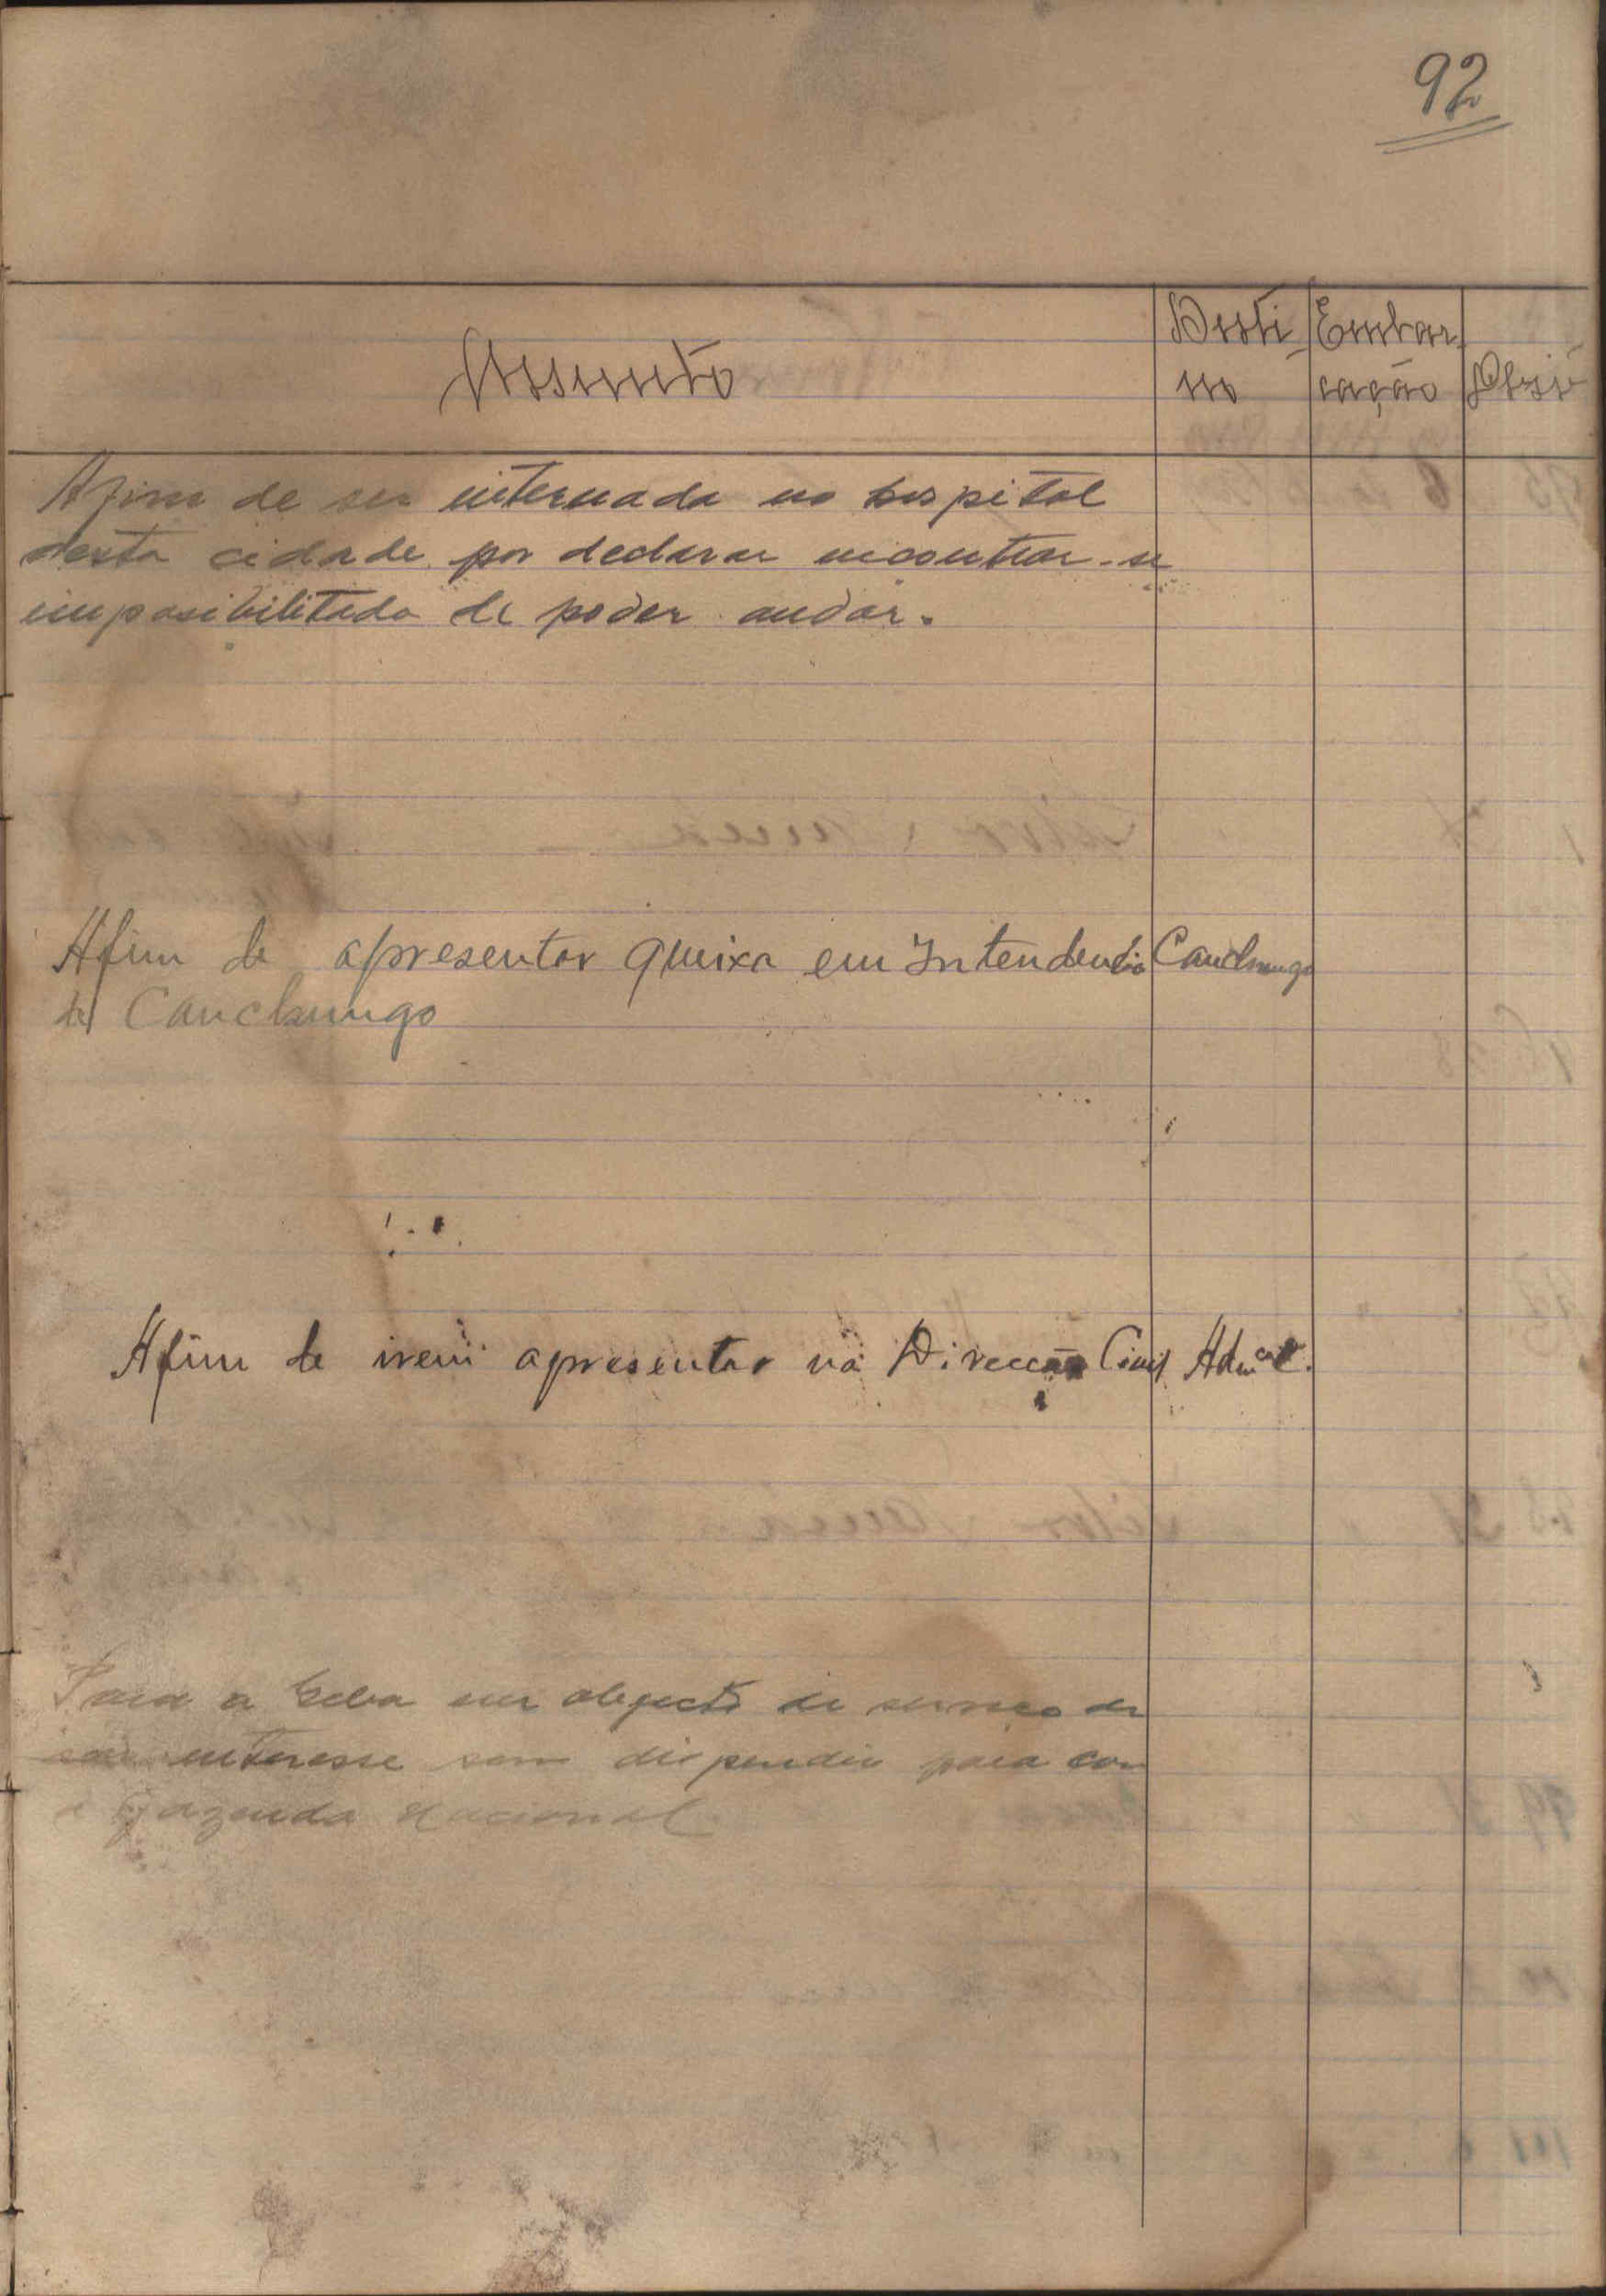 92
Assunto
Desti-
no
Embar-
cação
Afim de ser internada no hospital
desta cidade por declarar incontrar-se
imposibilitado de poder andar.
Afim de apresentar queixa em Intendencia Canchungo
de Canchungo
Afim de irem apresentar na Direcção Civil Admcal.
Para a Geba em objecto de serviço de
interesse sem dispendio para com
a Fazenda Nacional